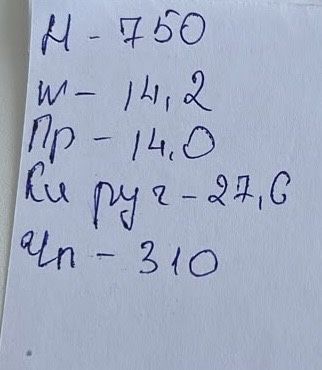 Н - 750
W - 14,2
Пр - 14,0
Кл руч - 27,6
Чп - 310